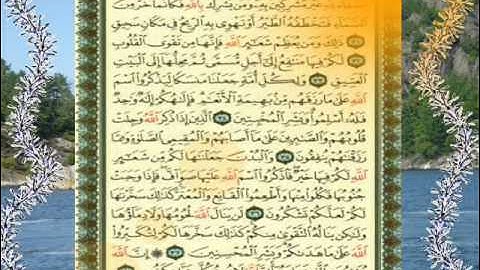 غير مشركين به ومن يشرك بالله فكأنما خر من
السماء فتخطفه الطير أو تهوي به الريح في مكان سحيق
﴿٣١﴾ ذلك ومن يعظم شعائر الله فإنها من تقوى القلوب
﴿٣٢﴾ لكم فيها منافع إلى أجل مسمى ثم محلها إلى البيت
العتيق ﴿٣٣﴾ ولكل أمة جعلنا منسكا ليذكروا اسم
الله على ما رزقهم من بهيمة الأنعام فإلهكم إله واحد
فله أسلموا وبشر المخبتين ﴿٣٤﴾ الذين إذا ذكر الله وجلت
قلوبهم والصابرين على ما أصابهم والمقيمي الصلوة ومما
رزقنهم ينفقون ﴿٣٥﴾ والبدن جعلناها لكم من شعائر
الله لكم فيها خير فاذكروا اسم الله عليها صواف فإذا وجبت
جنوبها فكلوا منها وأطعموا القانع والمعتر كذلك سخرناها
لكم لعلكم تشكرون ﴿٣٦﴾ لن ينال الله لحومها ولا دماؤها
ولكن يناله التقوى منكم كذلك سخرها لكم لتكبروا
الله على ما هداكم وبشر المحسنين ﴿٣٧﴾ إن الله